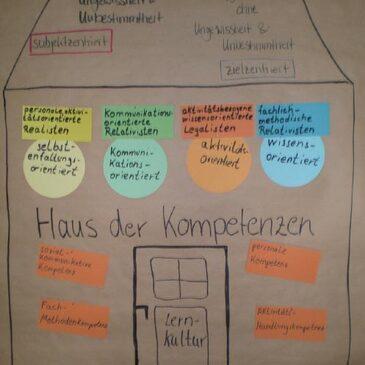 Ungewissheit &
Unbestimmtheit
subjektzentriert
ohne
Ungewissheit &
Unbestimmtheit
zielzentriert
personale, aktivi-
tätsorientierte
Realisten
Kommunikations-
orientierte
Relativisten
aktivitätsbezogene
wissensorientierte
Legalisten
fachlich-
methodische
Relativisten
selbst-
enfaltungs-
orientiert
Kommuni-
Kations-
orientiert
aktivität-
orientiert
wissens-
orientiert
Haus der Kompetenzen
sozial-
kommunikative
Kompetenz
personale
Kompetenz
Fach-
Methodenkompetenz
Aktivitäts-
Handlungskompetenz
Lern-
kultur